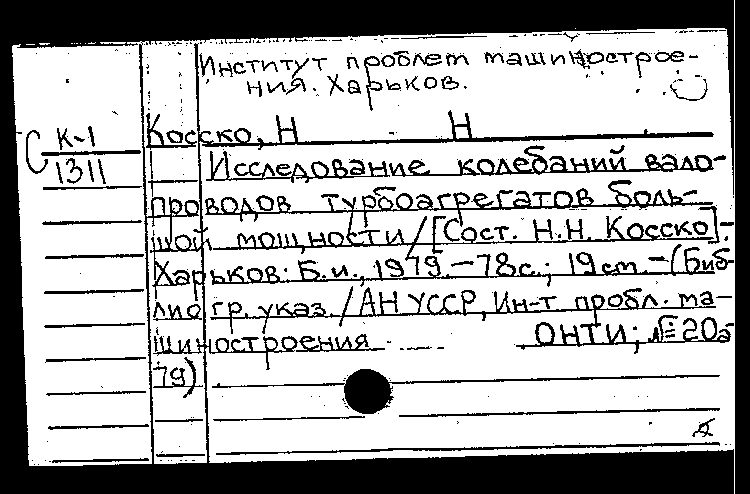 Институт проблем машинострое-
ния. Харьков.
С К-1
1311
Косско, Н Н
Исследование колебаний вало-
проводов турбоагрегатов боль-
шой мощности/[Сост. Н.Н. Косско].-
Харьков: Б.и., 1979.-78с.; 19см.-(Биб-
лиогр. указ./АН УССР, Ин-т пробл. ма-
шиностроения ОНТИ; №20а
79)